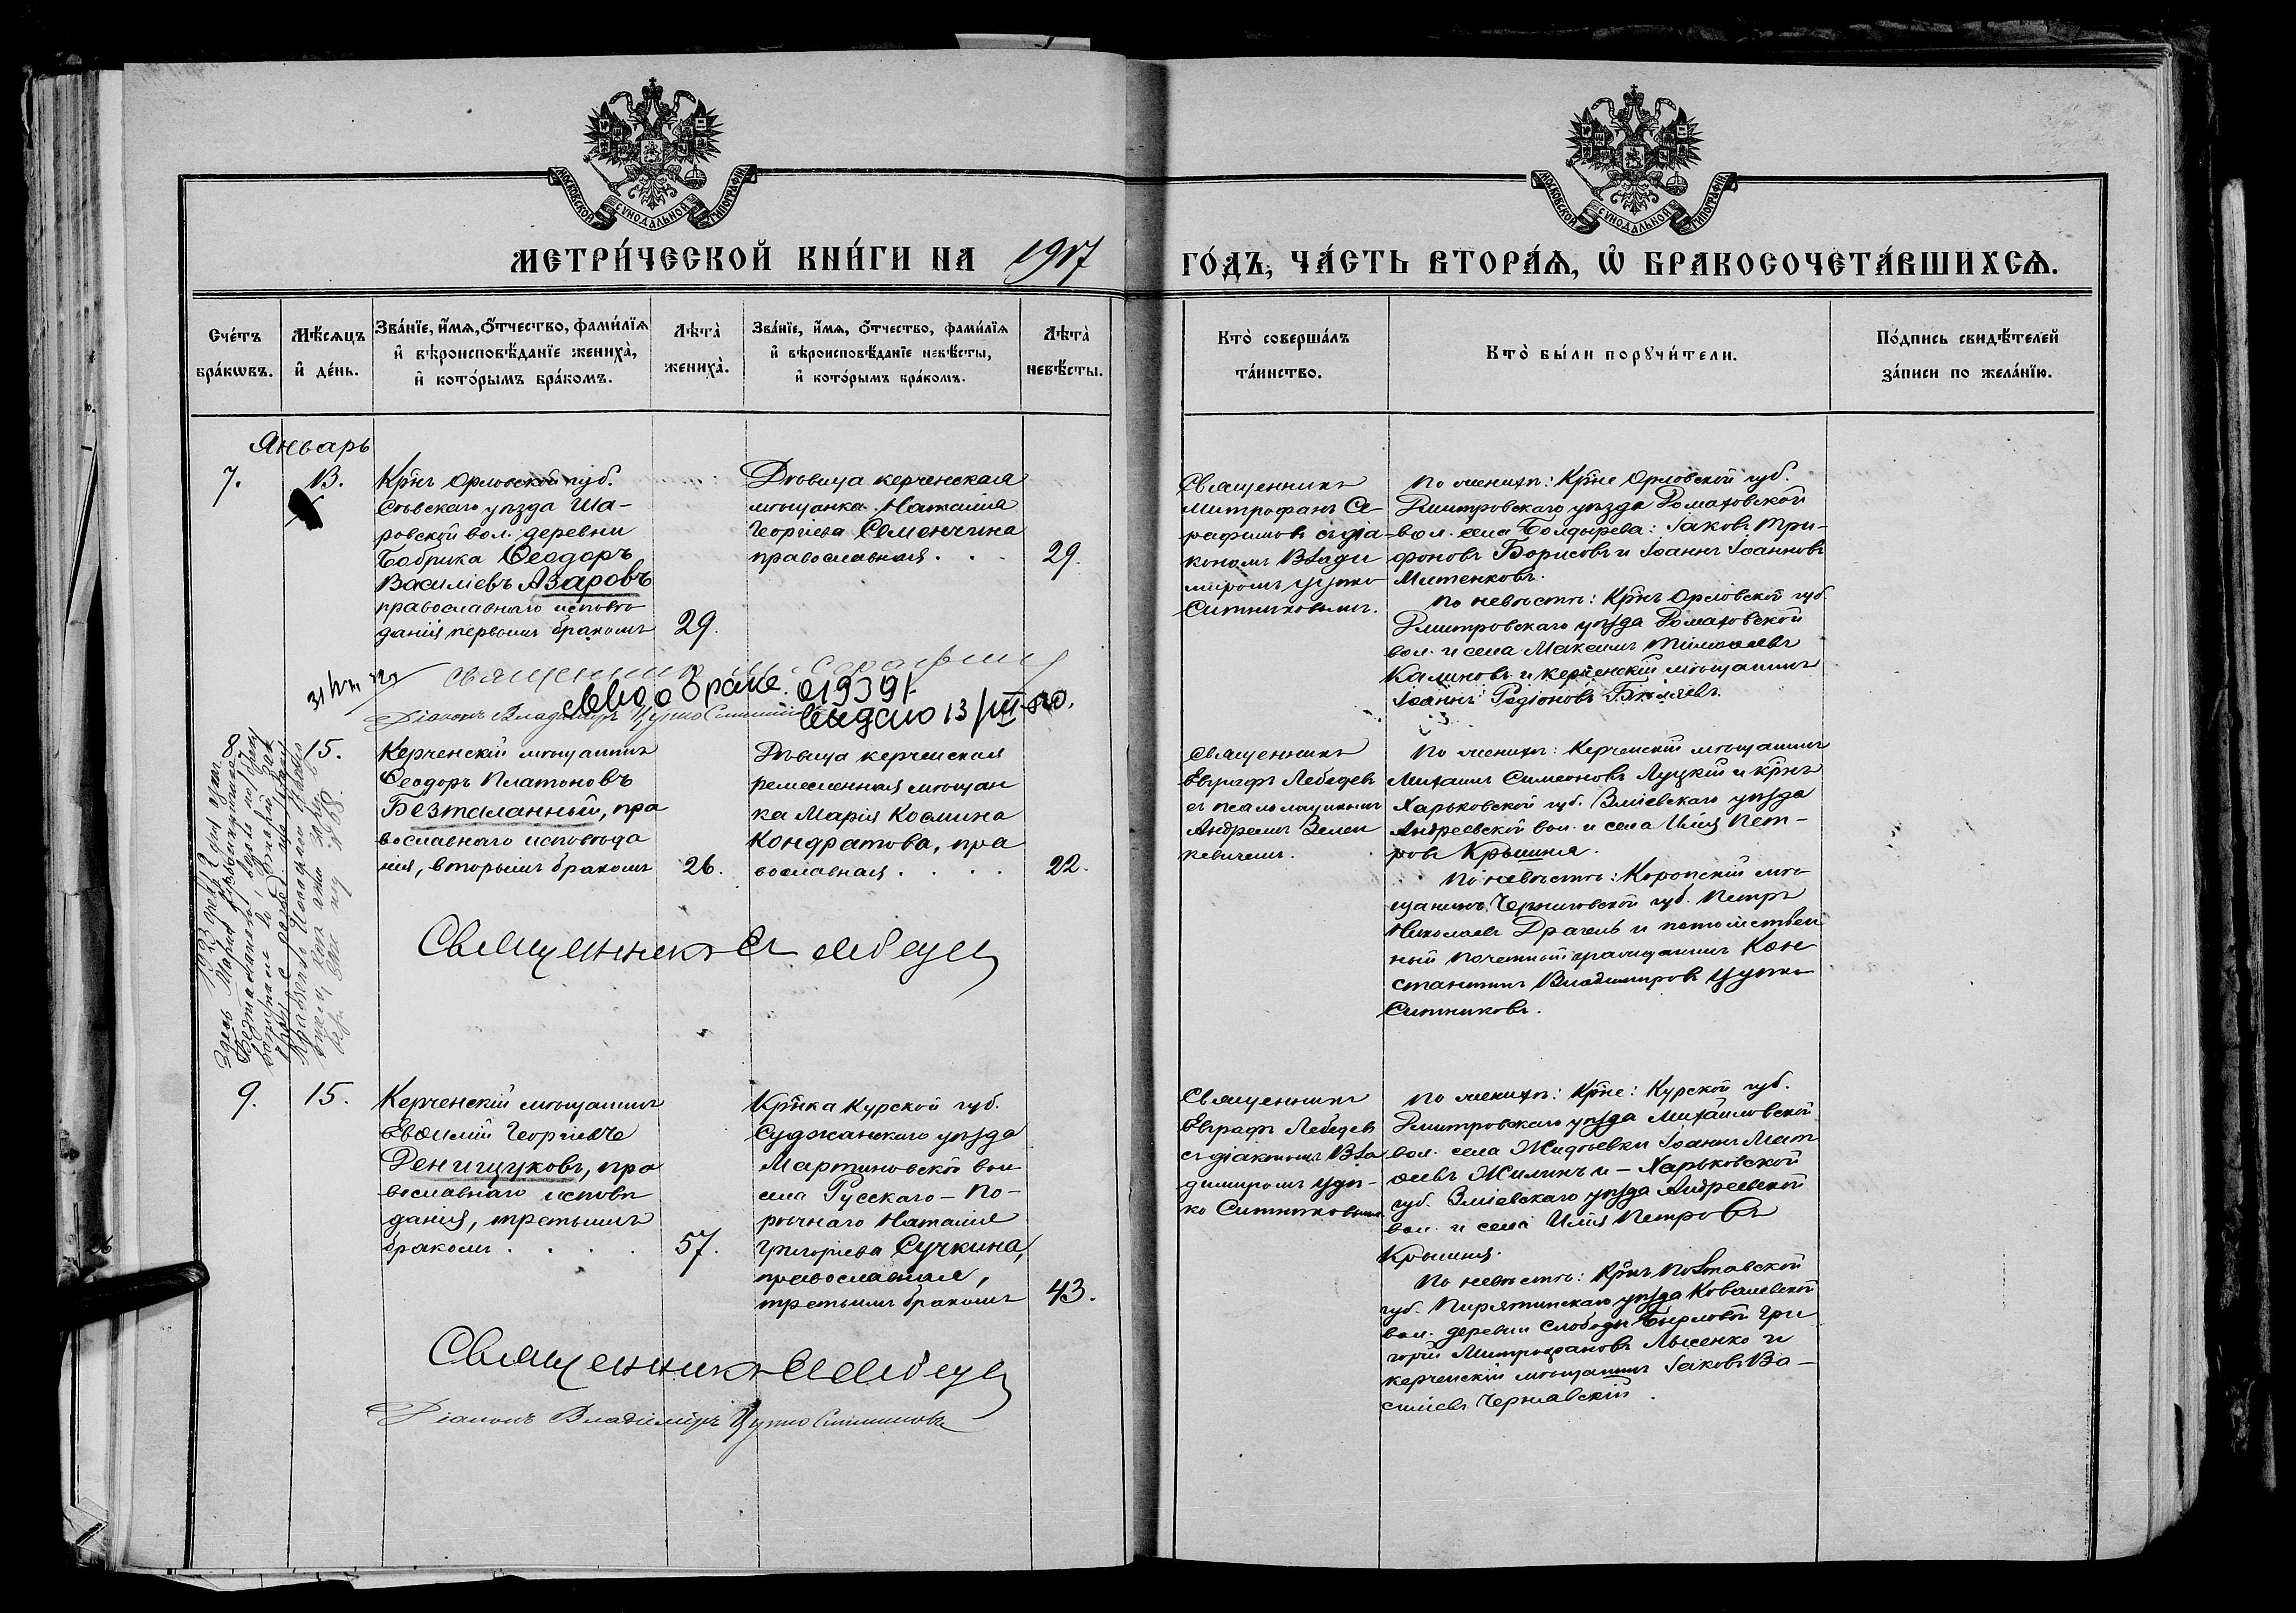 МОСКОВСКОЙ СУНОДАЛЬНОЙ ТИПОГРАФІИ
МОСКОВСКОЙ СУНОДАЛЬНОЙ ТИПОГРАФІИ
МЕТРИ́ЧЕСКОЙ КНИ́ГИ НА 1917 ГО́ДЪ, ЧА́СТЬ ВТОРА́Ѧ, Ѽ БРАКОСОЧЕТА́ВШИХСѦ.
Сче́тъ бра́кωвъ.
Мѣ́сѧцъ и҆ де́нь.
Зва́нїе, и҆́мѧ, ѻ҆́тчество, фами́лїѧ
и҆ вѣроисповѣ́данїе жениха̀,
и҆ кото́рымъ бра́комъ.
Лѣта̀ жениха̀.
Зва́нїе, и҆́мѧ, ѻ҆́тчество, фами́лїѧ
и҆ вѣроисповѣ́данїе невѣ́сты,
и҆ кото́рымъ бра́комъ.
Лѣта̀ невѣ́сты.
Кто̀ соверша́лъ
та́инство.
Кто̀ бы́ли порꙋчи́тели.
По́дпись свидѣ́телей
за́писи по жела́нїю.
Январь
7.
13.
Крнъ Орловской губ.
Сѣвскаго уѣзда Ша-
ровской вол. деревни
Бобрика Ѳеодоръ
Василіевъ Азаровъ
православнаго исповѣ
данія первымъ бракомъ
29.
Дѣвица керченская
мѣщанка Наталія
Георгіева Семенчина
православная . .
29.
Священникъ
Митрофанъ Се
рафимовъ съ діа
кономъ Влади
миромъ Цупко
Ситниковымъ.
По женихѣ: Крне Орловской губ.
Дмитровскаго уѣзда Домаховской
вол. села Болдырева: Іаковъ Три-
фоновъ Борисовъ и Іоаннъ Іоанновъ
Митенковъ.
По невѣстѣ: Крнъ Орловской губ.
Дмитровскаго уѣзда Домаховской
вол. и села Максимъ Тимоѳеевъ
Калиновъ и керченскій мѣщанинъ
Іоаннъ Родіоновъ Бѣляевъ.
Священникъ М. Серафим
Свид о браке. 019391.
Діаконъ Владиміръ Цупко Ситников
выдано 13/III-50.
8.
15.
Керченскій мѣщанинъ
Ѳеодоръ Платоновъ
Безталанный, пра
вославнаго исповѣда
нія, вторымъ бракомъ
26.
Дѣвица керченская
ремесленная мѣщан
ка Марія Косьмина
Кондратова, пра
вославная . . . .
22.
Священникъ
Евграфъ Лебедевъ
съ псаломщикомъ
Андреемъ Зелен
кевичемъ.
По женихѣ: Керченскій мѣщанинъ
Михаилъ Симеоновъ Луцкій и крнъ
Харьковской губ. Зміевскаго уѣзда
Андреевской вол. и села Илія Пет-
ровъ Крышня.
По невѣстѣ: Коропскій мѣ
щанинъ Черниговской губ. Петръ
Николаевъ Драгель и потомствен
ный почетный гражданинъ Кон
стантинъ Владимировъ Цупко
Ситниковъ.
Священникъ Е Лебедев
9.
15.
Керченскій мѣщанинъ
Евѳимій Георгіевъ
Денищуковъ, пра
вославнаго исповѣ
данія, третьимъ
бракомъ . . . .
57.
Крнка Курской губ.
Суджанскаго уѣзда
Мартыновской вол
села Русскаго-По-
рѣчнаго Наталія
Григоріева Сучкина,
православная,
третьимъ бракомъ
43.
Священникъ
Евграфъ Лебедевъ
съ діакономъ Вла
димиромъ Цуп-
ко Ситниковымъ
По женихѣ: Крне: Курской губ.
Дмитровскаго уѣзда Михайловской
вол. села Жидѣевки Іоаннъ Мат
ѳеевъ Жилинъ и - Харьковской
губ. Зміевскаго уѣзда Андреевской
вол. и села Илія Петровъ
Крышня.
По невѣстѣ: Крнъ Полтавской
губ. Пирятинскаго уѣзда Ковалевской
вол. деревни Слободы Бырловой Гри
горій Митрофановъ Лысенко и
керченскій мѣщанинъ Іаковъ Ва-
силіевъ Чернавскій.
Священникъ Е Лебедев
Діаконъ Владиміръ Цупко Ситниковъ